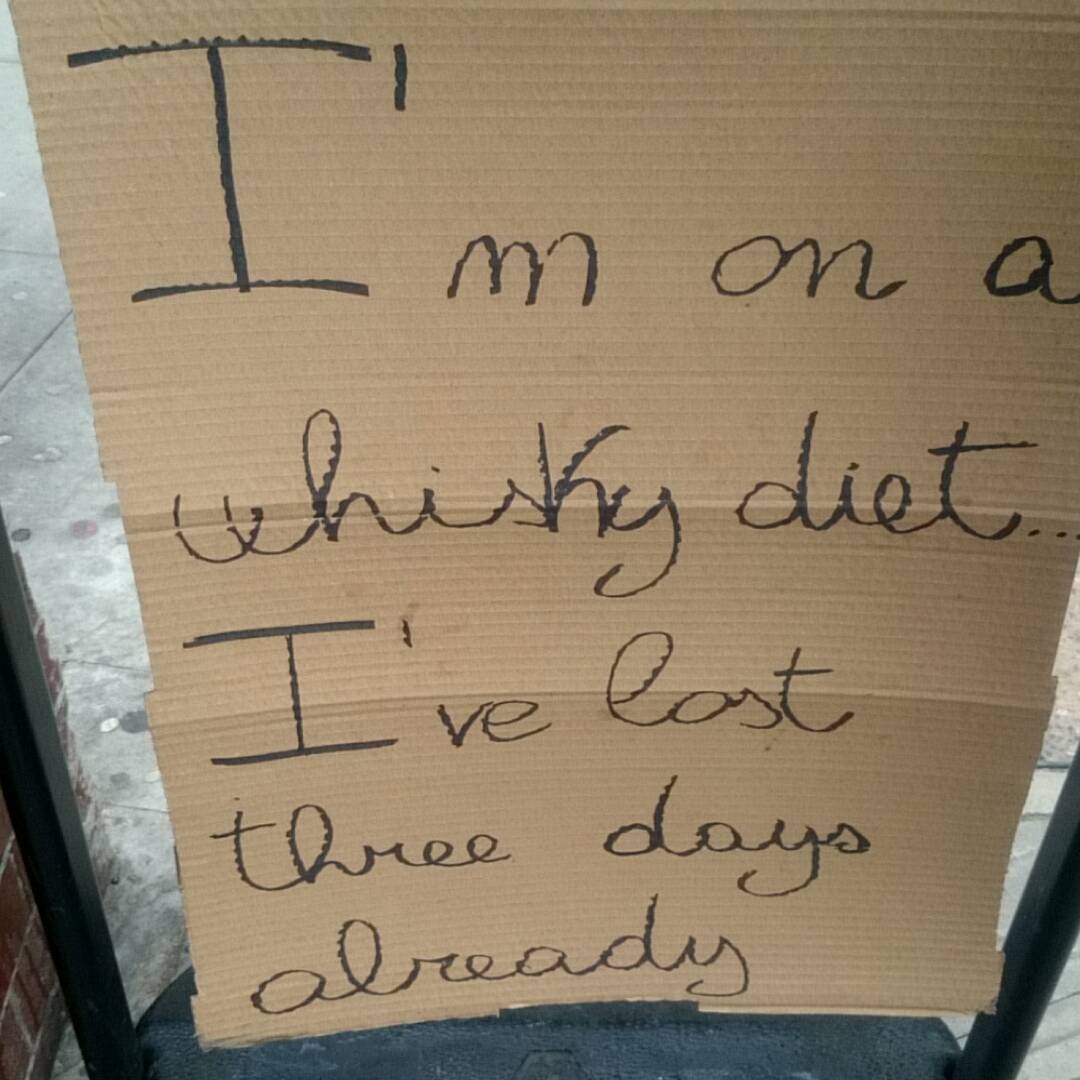 I'm on a
whisky diet...
I've lost
three days
already